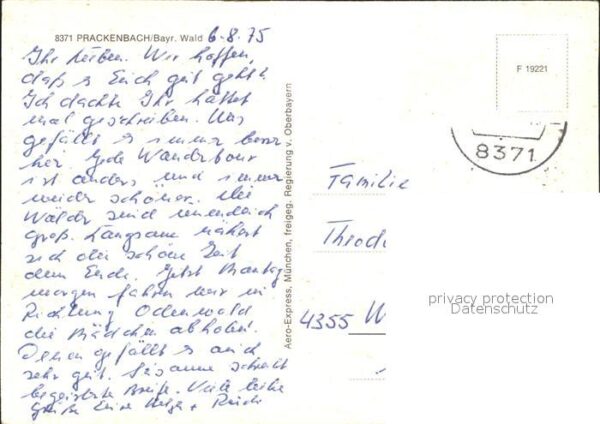 8371 PRACKENBACH/Bayr. Wald 6.8.75
Ihr Lieben. Wir hoffen,
daß es Euch gut geht!
Ich dachte Ihr hättet
mal geschrieben. Uns
gefällt es immer besser
hier. Jede Wandertour
ist anders, und immer
wieder schöner. Die
Wälder sind unendlich
groß. Langsam nähert
sich die schöne Zeit
dem Ende. Jetzt
morgen fahren wir in
Richtung Odenwald
die Mädchen abholen.
Denen gefällt es auch
sehr gut. Susanne schreibt
begeisterte Briefe. Viele liebe
Grüße Eure +
Aero-Express, München, freigeg. Regierung v. Oberbayern
F 19221
8371
Familie
Theod
4355 W
privacy protection
Datenschutz